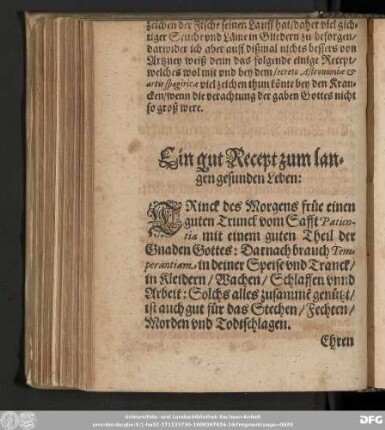 zeichen der Fische seinen Lauff hat/daher viel gich-
tiger Seuche vnd Läme in Gliedern zu besorgen/
darwider ich aber auff dißmal nichts bessers von
Artzney weiß denn das folgende einige Recept/
welches wol mit vnd bey dem secreto Astronomiæ &
artis spagiricæ viel zeichen thun könte bey den Kran-
cken/wenn die verachtung der gaben Gottes nicht
so groß were.
Ein gut Recept zum lan-
gen gesunden Leben:
TRinck des Morgens früe einen
guten Trunck vom Safft Patien-
tiæ mit einem guten Theil der
Gnaden Gottes: Darnach brauch Tem-
perantiam in deiner Speise vnd Tranck/
in Kleidern/ Wachen/ Schlaffen vnnd
Arbeit: Solchs alles zusammē genützt/
ist auch gut für das Stechen/ Fechten/
Morden vnd Todtschlagen.
Ehren
Universitäts- und Landesbibliothek Sachsen-Anhalt